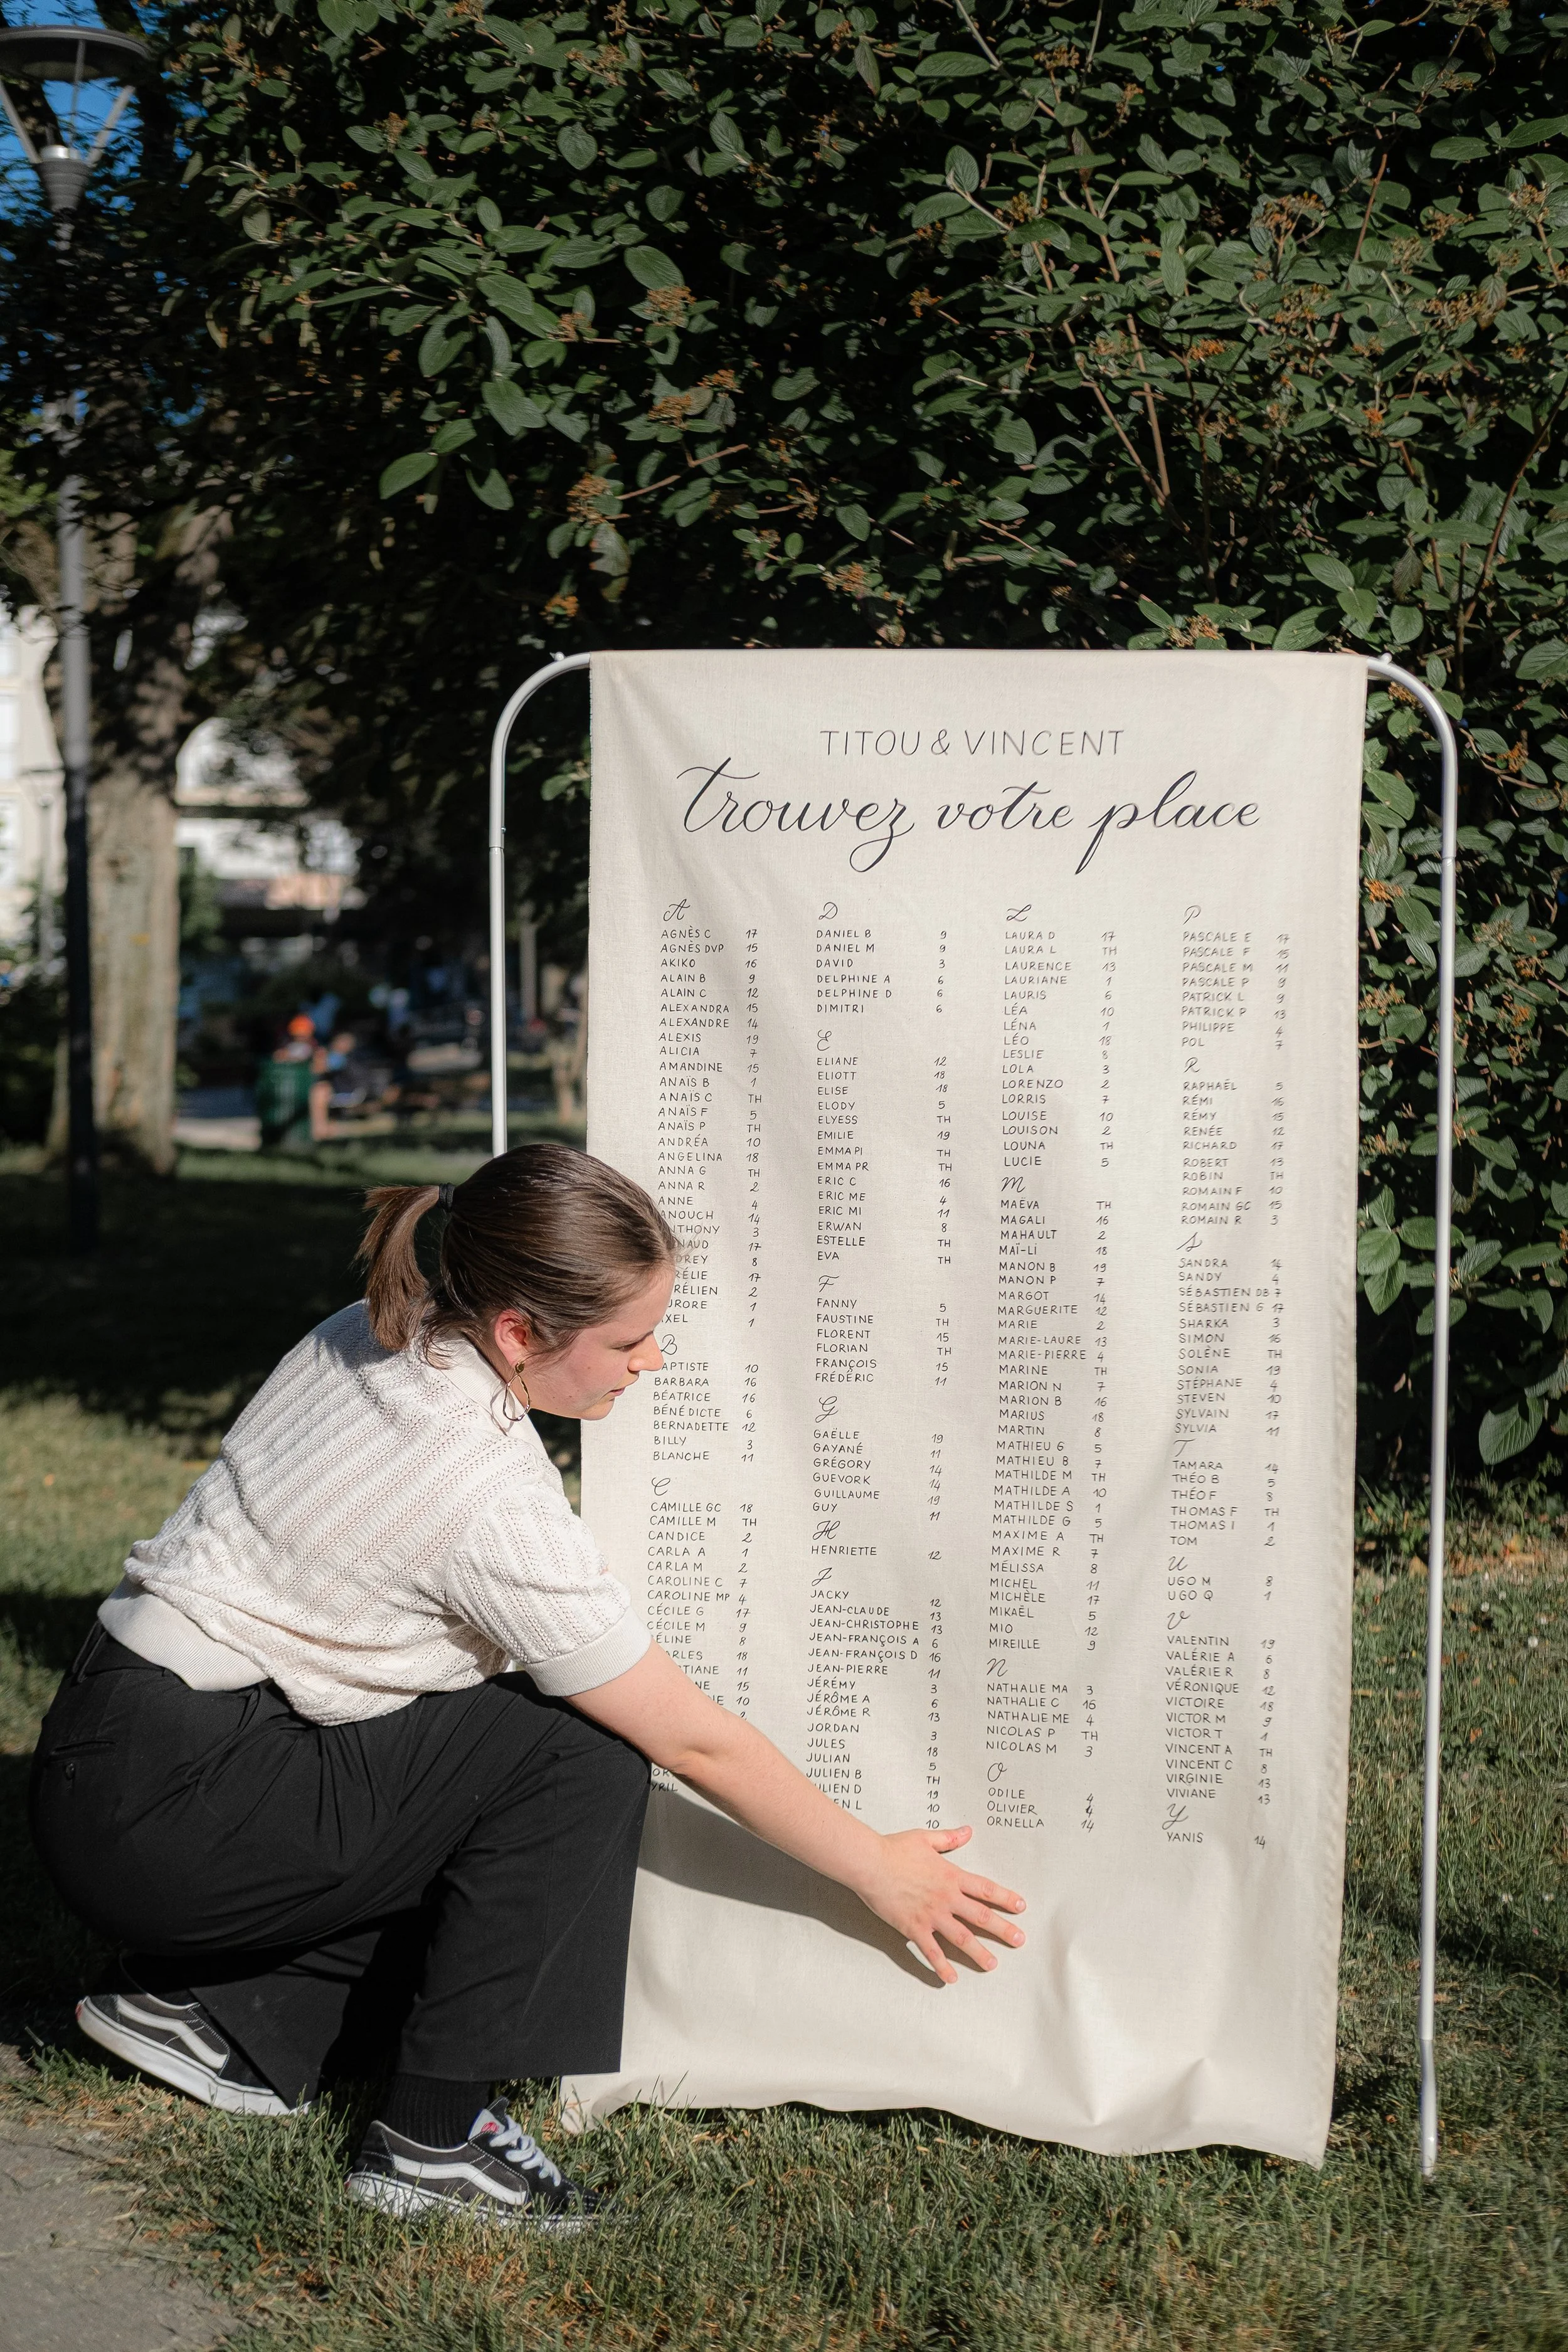 TITOU & VINCENT
trouvez votre place
A
AGNÈS C 17
AGNÈS DVP 15
AKIKO 16
ALAIN B 9
ALAIN C 12
ALEXANDRA 15
ALEXANDRE 14
ALEXIS 19
ALICIA 7
AMANDINE 15
ANAÏS B 1
ANAÏS C TH
ANAÏS F 5
ANAÏS P TH
ANDRÉA 10
ANGELINA 18
ANNA G TH
ANNA R 2
ANNE 4
ANOUCH 14
NTHONY 3
NAUD 17
DREY 8
RÉLIE 17
RÉLIEN 2
URORE 1
XEL 1
B
APTISTE 10
BARBARA 16
BÉATRICE 16
BÉNÉDICTE 6
BERNADETTE 12
BILLY 3
BLANCHE 11
C
CAMILLE GC 18
CAMILLE M TH
CANDICE 2
CARLA A 1
CARLA M 2
CAROLINE C 7
CAROLINE MP 4
CÉCILE G 17
CÉCILE M 9
ÉLINE 8
ARLES 18
STIANE 11
NE 15
IE 10
YRIL
D
DANIEL B 9
DANIEL M 9
DAVID 3
DELPHINE A 6
DELPHINE D 6
DIMITRI 6
E
ELIANE 12
ELIOTT 18
ELISE 18
ELODY 5
ELYESS TH
EMILIE 19
EMMA PI TH
EMMA PR TH
ERIC C 16
ERIC ME 4
ERIC MI 11
ERWAN 8
ESTELLE TH
EVA TH
F
FANNY 5
FAUSTINE TH
FLORENT 15
FLORIAN TH
FRANÇOIS 15
FRÉDÉRIC 11
G
GAËLLE 19
GAYANÉ 11
GRÉGORY 14
GUEVORK 14
GUILLAUME 19
GUY 11
H
HENRIETTE 12
J
JACKY 12
JEAN-CLAUDE 13
JEAN-CHRISTOPHE 13
JEAN-FRANÇOIS A 6
JEAN-FRANÇOIS D 16
JEAN-PIERRE 11
JÉRÉMY 3
JÉRÔME A 6
JÉRÔME R 13
JORDAN 3
JULES 18
JULIAN 5
JULIEN B TH
ULIEN D 19
EN L 10
10
L
LAURA D 17
LAURA L TH
LAURENCE 13
LAURIANE 1
LAURIS 6
LÉA 10
LÉNA 1
LÉO 18
LESLIE 8
LOLA 3
LORENZO 2
LORRIS 7
LOUISE 10
LOUISON 2
LOUNA TH
LUCIE 5
M
MAËVA TH
MAGALI 16
MAHAULT 2
MAÏ-LI 18
MANON B 19
MANON P 7
MARGOT 14
MARGUERITE 12
MARIE 2
MARIE-LAURE 13
MARIE-PIERRE 4
MARINE TH
MARION N 7
MARION B 16
MARIUS 18
MARTIN 8
MATHIEU G 5
MATHIEU B 7
MATHILDE M TH
MATHILDE A 10
MATHILDE S 1
MATHILDE G 5
MAXIME A TH
MAXIME R 7
MÉLISSA 8
MICHEL 11
MICHÈLE 17
MIKAËL 5
MIO 12
MIREILLE 9
N
NATHALIE MA 3
NATHALIE C 16
NATHALIE ME 4
NICOLAS P TH
NICOLAS M 3
O
ODILE 4
OLIVIER 4
ORNELLA 14
P
PASCALE E 17
PASCALE F 15
PASCALE M 11
PASCALE P 9
PATRICK L 9
PATRICK P 13
PHILIPPE 4
POL 7
R
RAPHAËL 5
RÉMI 16
RÉMY 15
RENÉE 12
RICHARD 17
ROBERT 13
ROBIN TH
ROMAIN F 10
ROMAIN GC 15
ROMAIN R 3
S
SANDRA 14
SANDY 4
SÉBASTIEN DB 7
SÉBASTIEN G 17
SHARKA 3
SIMON 16
SOLÈNE TH
SONIA 19
STÉPHANE 4
STEVEN 10
SYLVAIN 17
SYLVIA 11
T
TAMARA 14
THÉO B 5
THÉO F 8
THOMAS F TH
THOMAS I 1
TOM 2
U
UGO M 8
UGO Q 1
V
VALENTIN 19
VALÉRIE A 6
VALÉRIE R 8
VÉRONIQUE 12
VICTOIRE 18
VICTOR M 9
VICTOR T 1
VINCENT A TH
VINCENT C 8
VIRGINIE 13
VIVIANE 13
Y
YANIS 14